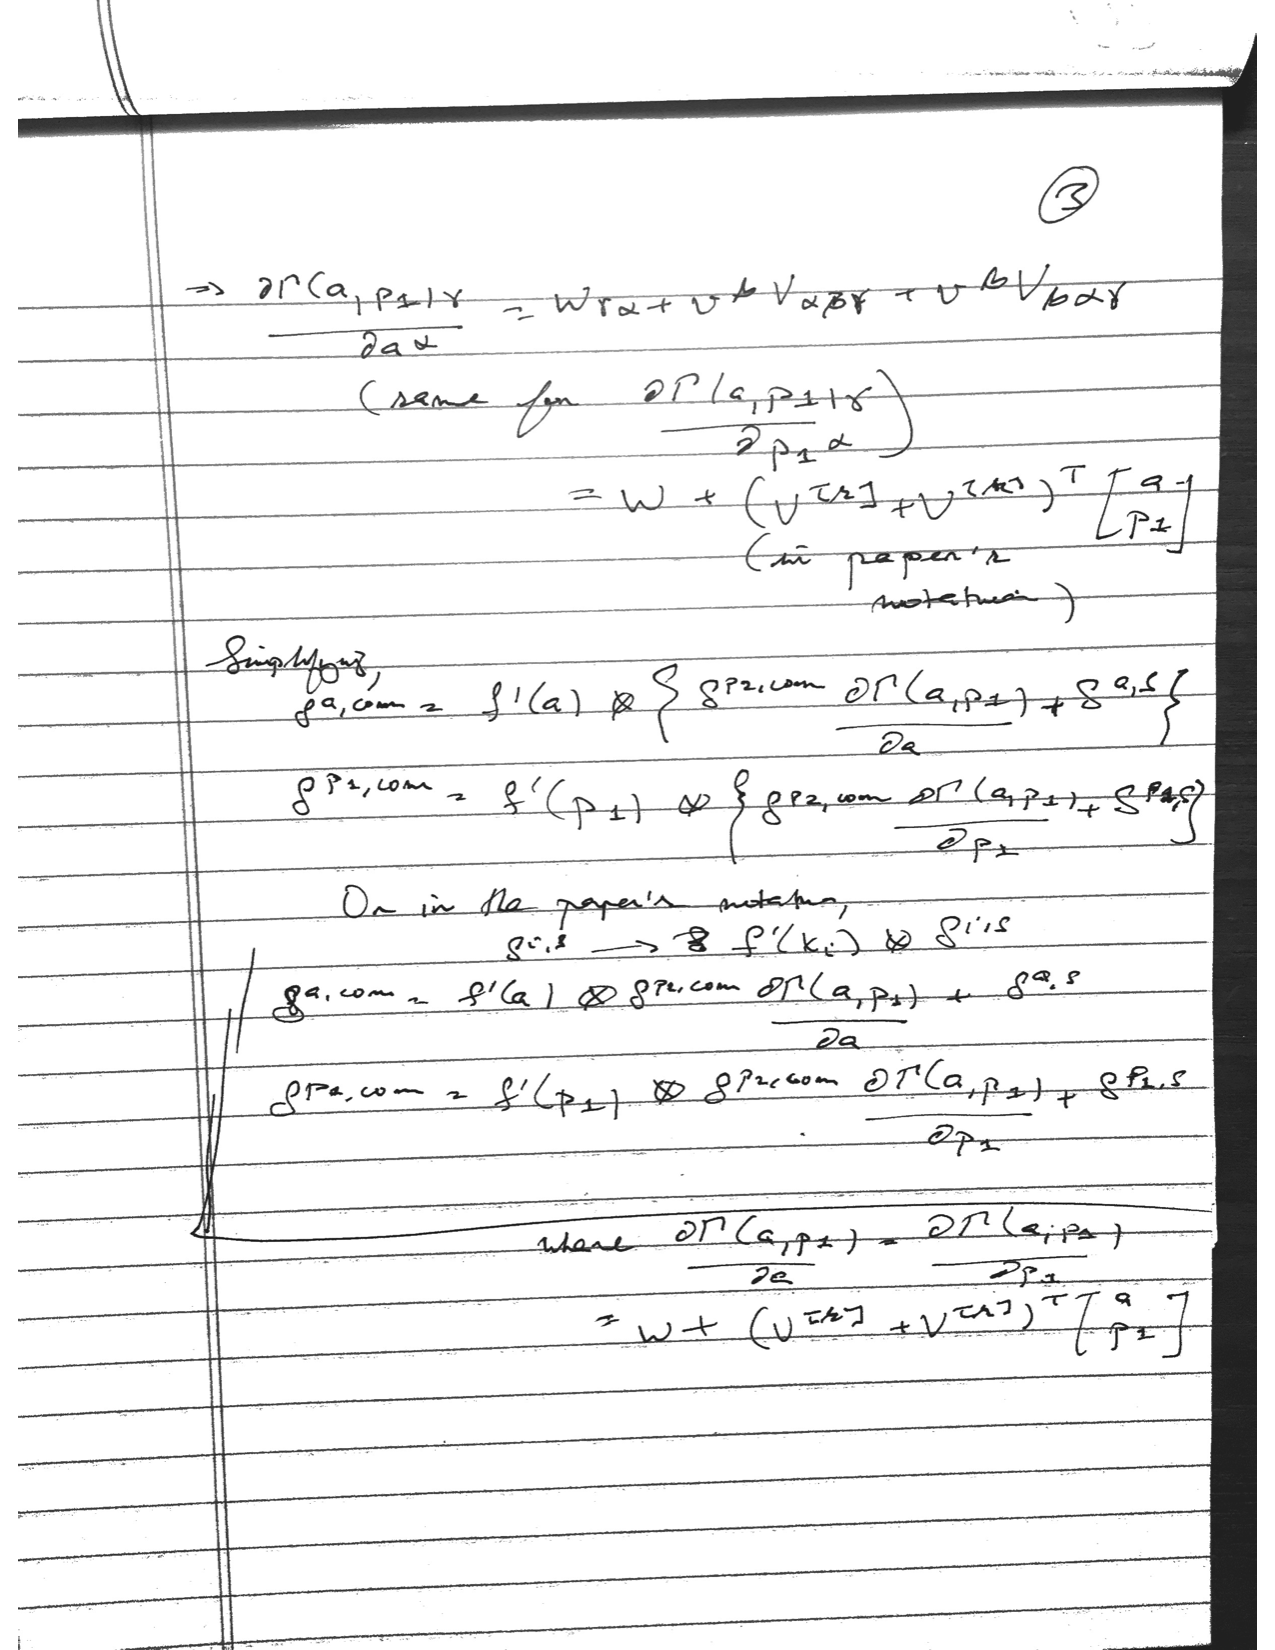 ③
⇒ ∂Γ(a, p₁)γ / ∂aα = Wγα + v^β Vαβγ + v^β Vβαγ
(same for ∂Γ(a, p₁)γ / ∂p₁α)
= W + (V^[k] + V^[k])^T [a p₁]
(in paper's
notation)
Simplifying,
δ^a,com = f'(a) ⊗ { δ^p2,com ∂Γ(a, p₁) / ∂a + δ^a,s }
δ^p1,com = f'(p₁) ⊗ { δ^p2,com ∂Γ(a, p₁) / ∂p₁ + δ^p1,s }
Or in the paper's notation,
δ^i,s → f'(xᵢ) ⊗ δ^i,s
δ^a,com = f'(a) ⊗ δ^p2,com ∂Γ(a, p₁) / ∂a + δ^a,s
δ^p1,com = f'(p₁) ⊗ δ^p2,com ∂Γ(a, p₁) / ∂p₁ + δ^p1,s
where ∂Γ(a, p₁) / ∂a = ∂Γ(a, p₁) / ∂p₁
= W + (V^[k] + V^[k])^T [a p₁]